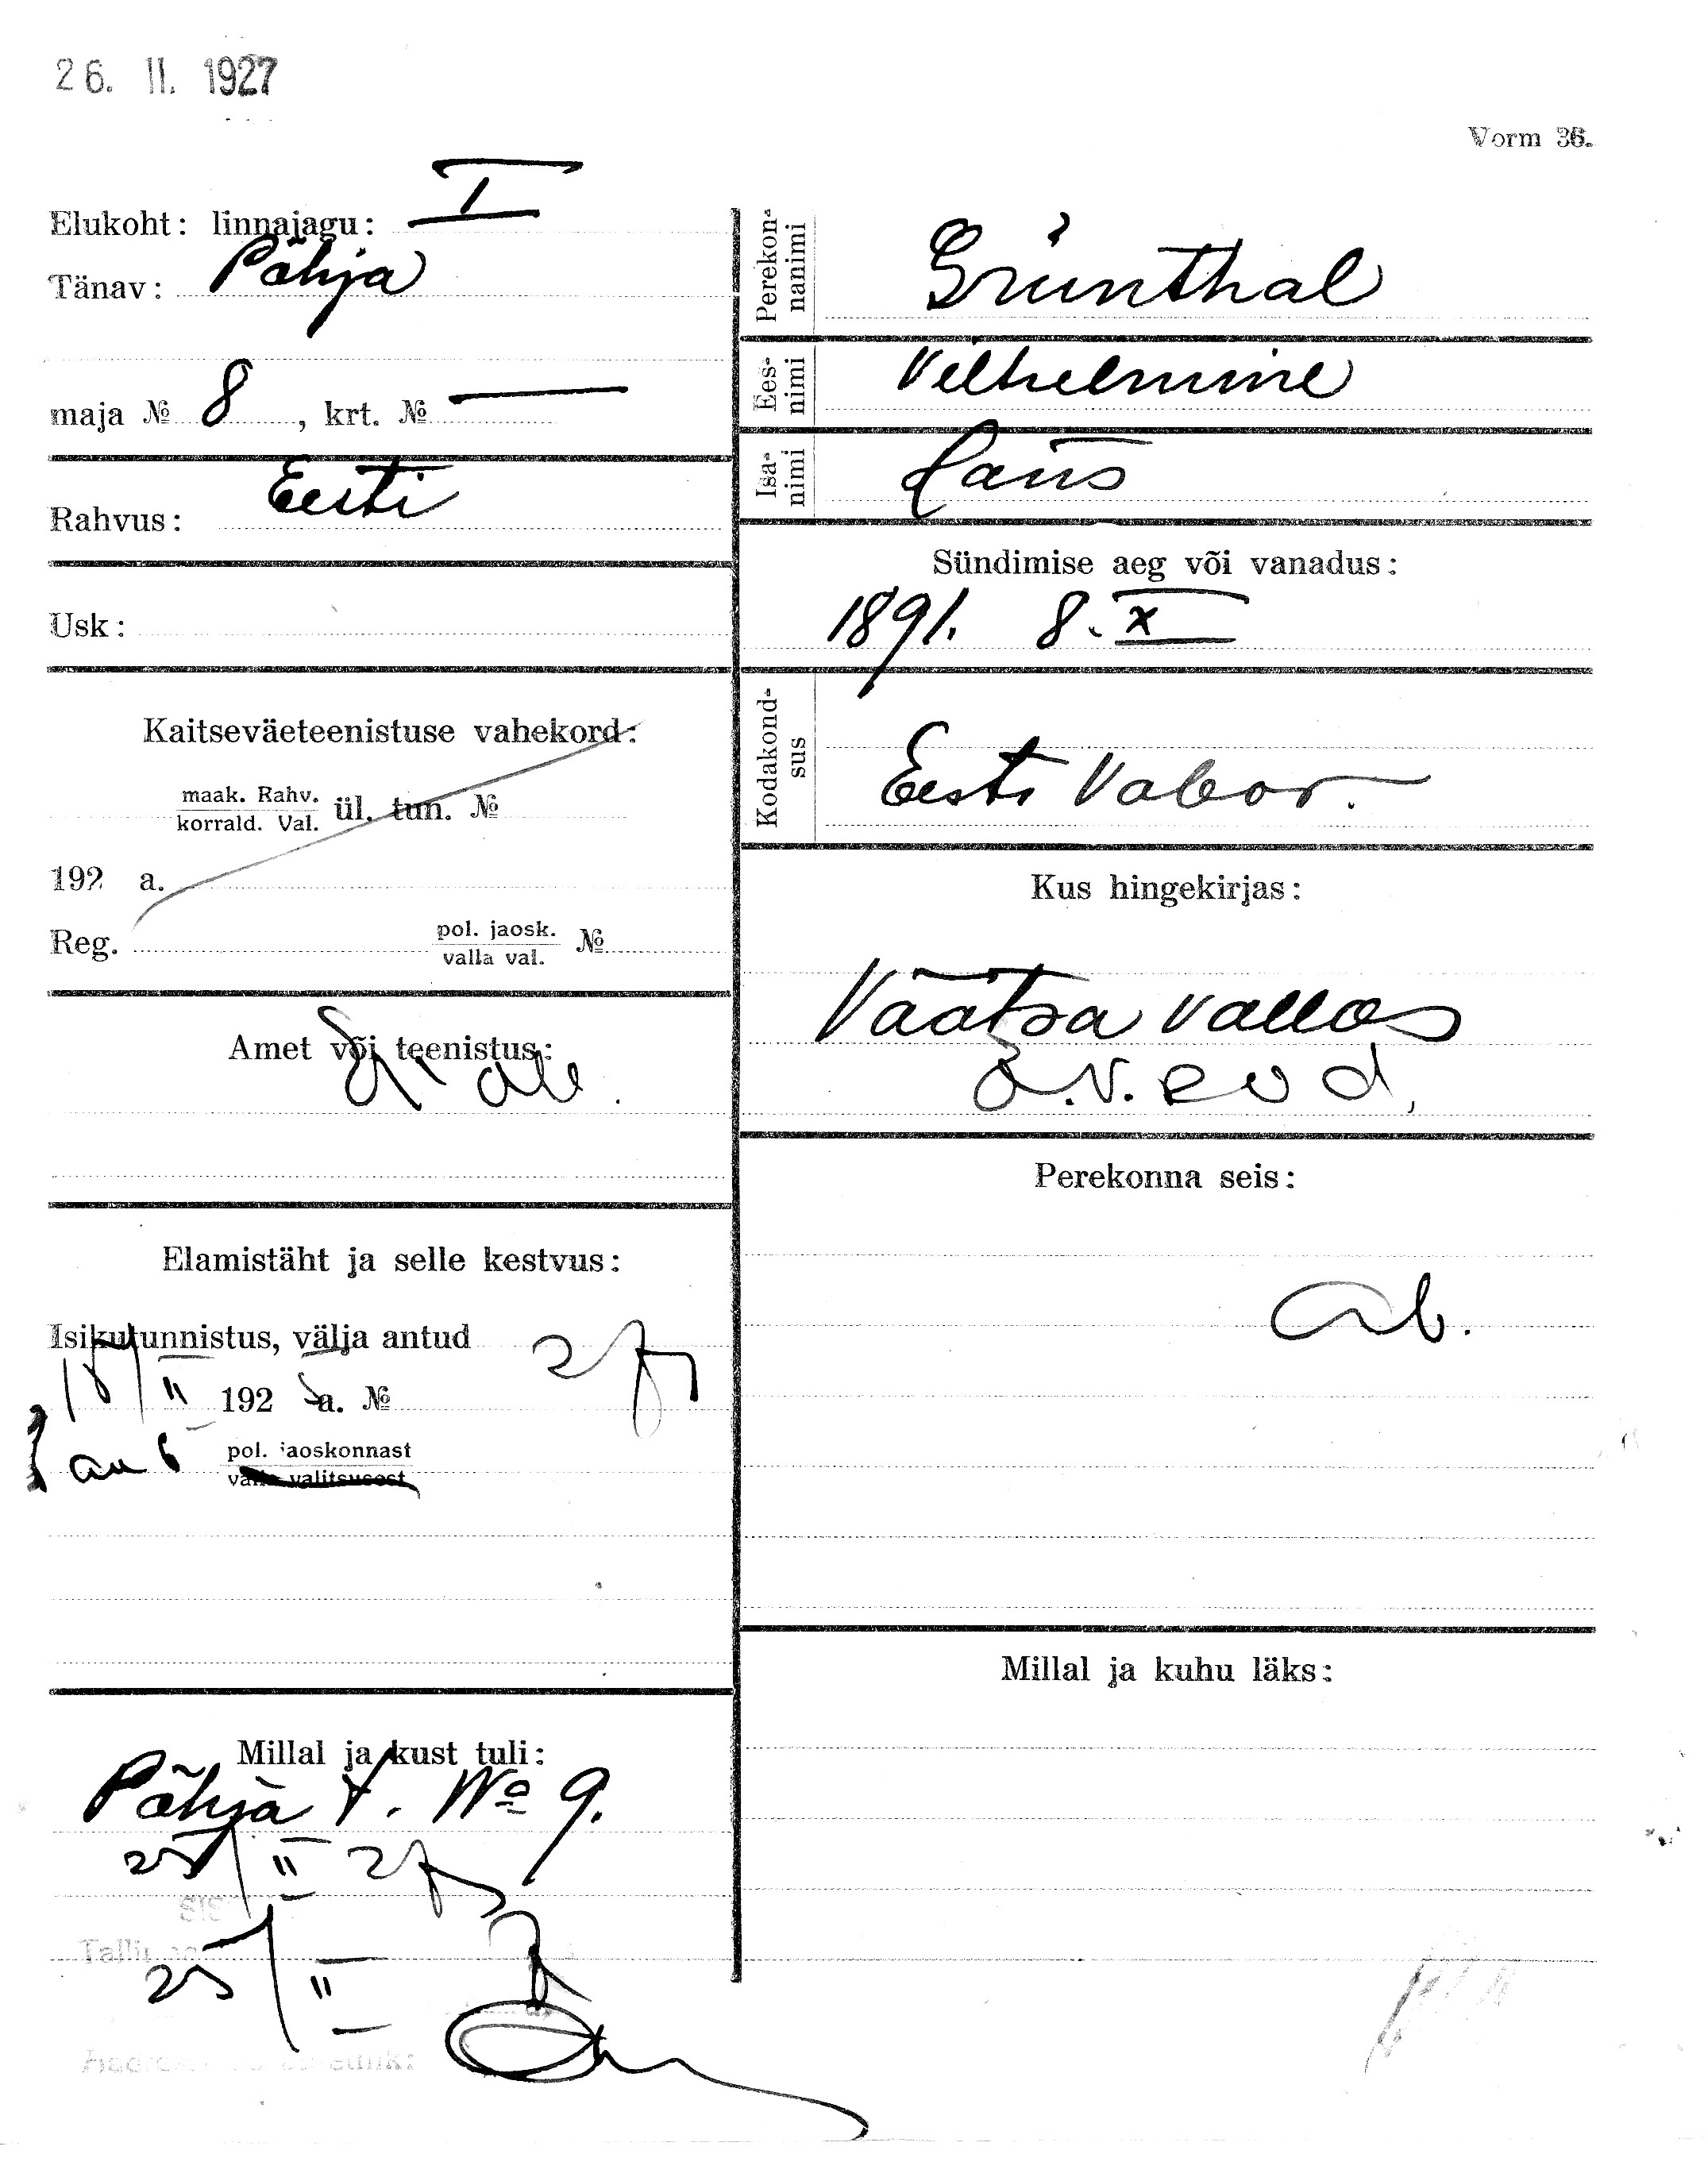 26. II. 1927
Vorm 36.
Elukoht: linnajagu: I
Tänav: Põhja
maja № 8, krt. № —
Rahvus: Eesti
Usk:
Kaitseväeteenistuse vahekord:
maak. Rahv.
korrald. Val. ül. tun. №
192 a.
Reg. pol. jaosk. №
valla val.
Amet või teenistus:
Elamistäht ja selle kestvus:
Isikutunnistus, välja antud
II 192 a. № 27
pol. jaoskonnast
valla valitsusest
Millal ja kust tuli:
Põhja t. № 9.
25/II 27
Tallinna
25/II
Perekonnanimi
Grünthal
Eesnimi
Vilhelmine
Isanimi
Hans
Sündimise aeg või vanadus:
1891. 8. X
Kodakondsus
Eesti Vabar.
Kus hingekirjas:
Väätsa vallas
Perekonna seis:
ab.
Millal ja kuhu läks: